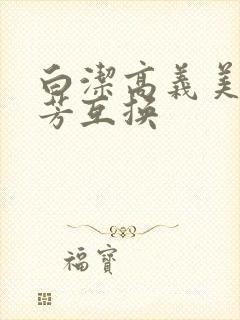 白潔高義美
芳互换
福寶